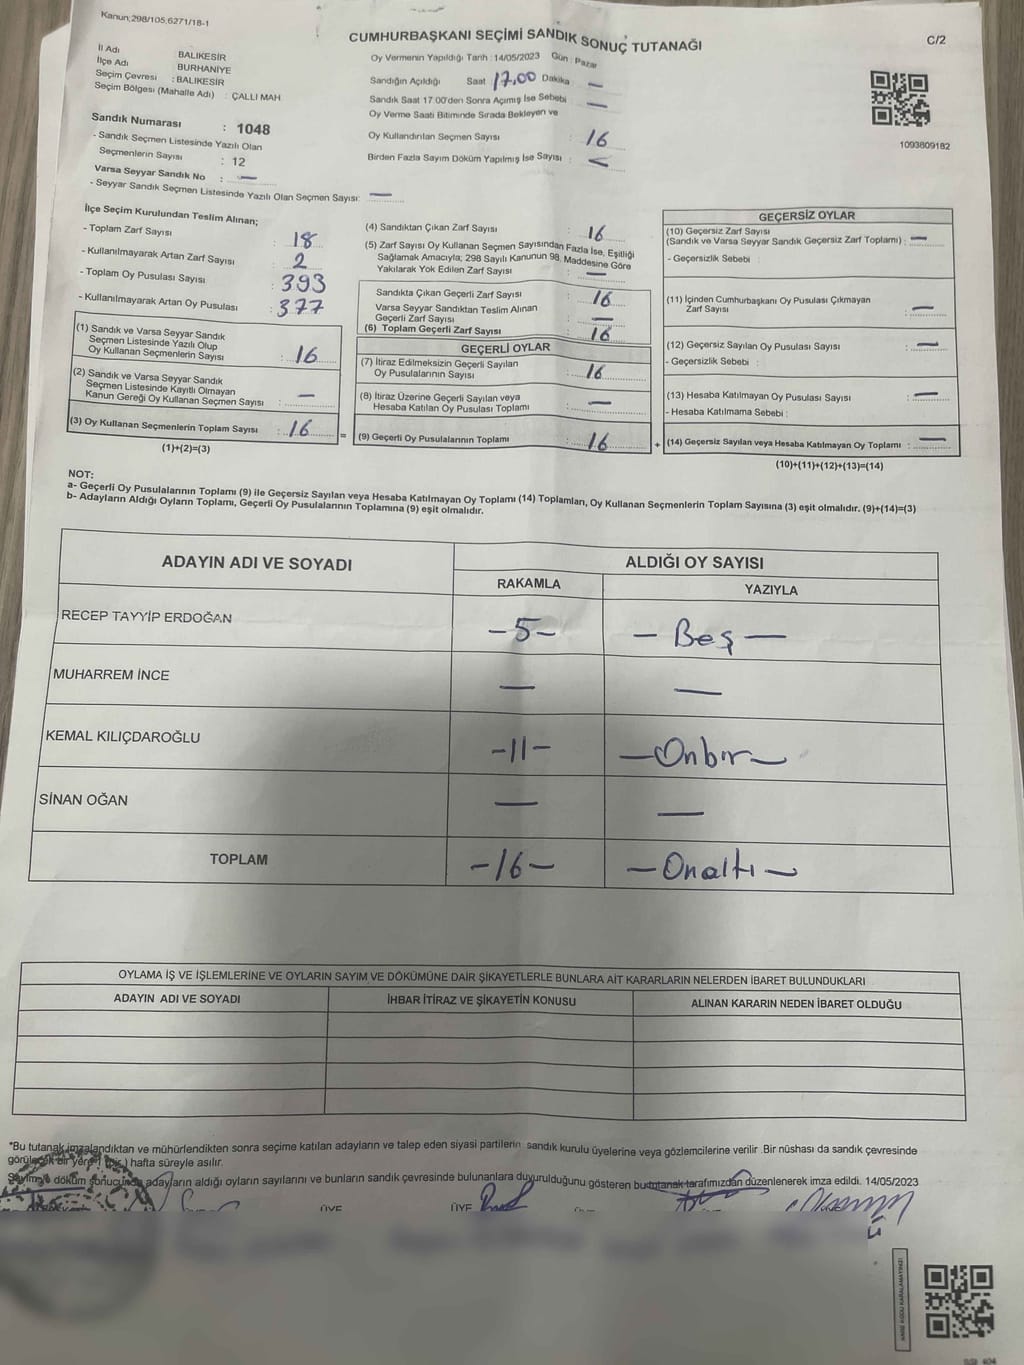 Kanun;298/105,6271/18-1
CUMHURBAŞKANI SEÇİMİ SANDIK SONUÇ TUTANAĞI
C/2
İl Adı : BALIKESİR
İlçe Adı : BURHANİYE
Seçim Çevresi : BALIKESİR
Seçim Bölgesi (Mahalle Adı) : ÇALLI MAH
Oy Vermenin Yapıldığı Tarih : 14/05/2023 Gün : Pazar
Sandığın Açıldığı Saat 17,00 Dakika —
Sandık Saat 17.00'den Sonra Açımış İse Sebebi —
Oy Verme Saati Bitiminde Sırada Bekleyen ve
Oy Kullandırılan Seçmen Sayısı : 16
Birden Fazla Sayım Döküm Yapılmış İse Sayısı : —
1093809182
Sandık Numarası : 1048
- Sandık Seçmen Listesinde Yazılı Olan
Seçmenlerin Sayısı : 12
Varsa Seyyar Sandık No : —
- Seyyar Sandık Seçmen Listesinde Yazılı Olan Seçmen Sayısı: —
İlçe Seçim Kurulundan Teslim Alınan;
- Toplam Zarf Sayısı : 18
- Kullanılmayarak Artan Zarf Sayısı : 2
- Toplam Oy Pusulası Sayısı : 393
- Kullanılmayarak Artan Oy Pusulası : 377
(1) Sandık ve Varsa Seyyar Sandık
Seçmen Listesinde Yazılı Olup
Oy Kullanan Seçmenlerin Sayısı : 16
(2) Sandık ve Varsa Seyyar Sandık
Seçmen Listesinde Kayıtlı Olmayan
Kanun Gereği Oy Kullanan Seçmen Sayısı : —
(3) Oy Kullanan Seçmenlerin Toplam Sayısı : 16
(1)+(2)=(3)
(4) Sandıktan Çıkan Zarf Sayısı : 16
(5) Zarf Sayısı Oy Kullanan Seçmen Sayısından Fazla İse, Eşitliği
Sağlamak Amacıyla; 298 Sayılı Kanunun 98. Maddesine Göre
Yakılarak Yok Edilen Zarf Sayısı : —
Sandıkta Çıkan Geçerli Zarf Sayısı : 16
Varsa Seyyar Sandıktan Teslim Alınan
Geçerli Zarf Sayısı : —
(6) Toplam Geçerli Zarf Sayısı : 16
GEÇERLİ OYLAR
(7) İtiraz Edilmeksizin Geçerli Sayılan
Oy Pusulalarının Sayısı : 16
(8) İtiraz Üzerine Geçerli Sayılan veya
Hesaba Katılan Oy Pusulası Toplamı : —
= (9) Geçerli Oy Pusulalarının Toplamı : 16
GEÇERSİZ OYLAR
(10) Geçersiz Zarf Sayısı
(Sandık ve Varsa Seyyar Sandık Geçersiz Zarf Toplamı) : —
- Geçersizlik Sebebi :
(11) İçinden Cumhurbaşkanı Oy Pusulası Çıkmayan
Zarf Sayısı : —
(12) Geçersiz Sayılan Oy Pusulası Sayısı : —
- Geçersizlik Sebebi :
(13) Hesaba Katılmayan Oy Pusulası Sayısı : —
- Hesaba Katılmama Sebebi :
+ (14) Geçersiz Sayılan veya Hesaba Katılmayan Oy Toplamı : —
(10)+(11)+(12)+(13)=(14)
NOT:
a- Geçerli Oy Pusulalarının Toplamı (9) ile Geçersiz Sayılan veya Hesaba Katılmayan Oy Toplamı (14) Toplamları, Oy Kullanan Seçmenlerin Toplam Sayısına (3) eşit olmalıdır. (9)+(14)=(3)
b- Adayların Aldığı Oyların Toplamı, Geçerli Oy Pusulalarının Toplamına (9) eşit olmalıdır.
ADAYIN ADI VE SOYADI
ALDIĞI OY SAYISI
RAKAMLA
YAZIYLA
RECEP TAYYİP ERDOĞAN -5- — Beş —
MUHARREM İNCE — —
KEMAL KILIÇDAROĞLU -11- — Onbir —
SİNAN OĞAN — —
TOPLAM -16- — Onaltı —
OYLAMA İŞ VE İŞLEMLERİNE VE OYLARIN SAYIM VE DÖKÜMÜNE DAİR ŞİKAYETLERLE BUNLARA AİT KARARLARIN NELERDEN İBARET BULUNDUKLARI
ADAYIN ADI VE SOYADI
İHBAR İTİRAZ VE ŞİKAYETİN KONUSU
ALINAN KARARIN NEDEN İBARET OLDUĞU
*Bu tutanak imzalandıktan ve mühürlendikten sonra seçime katılan adayların ve talep eden siyasi partilerin sandık kurulu üyelerine veya gözlemcilerine verilir. Bir nüshası da sandık çevresinde
görülecek bir yere ( bir ) hafta süreyle asılır.
Sayım ve döküm sonucunda adayların aldığı oyların sayılarını ve bunların sandık çevresinde bulunanlara duyurulduğunu gösteren bu tutanak tarafımızdan düzenlenerek imza edildi. 14/05/2023
ÜYE ÜYE